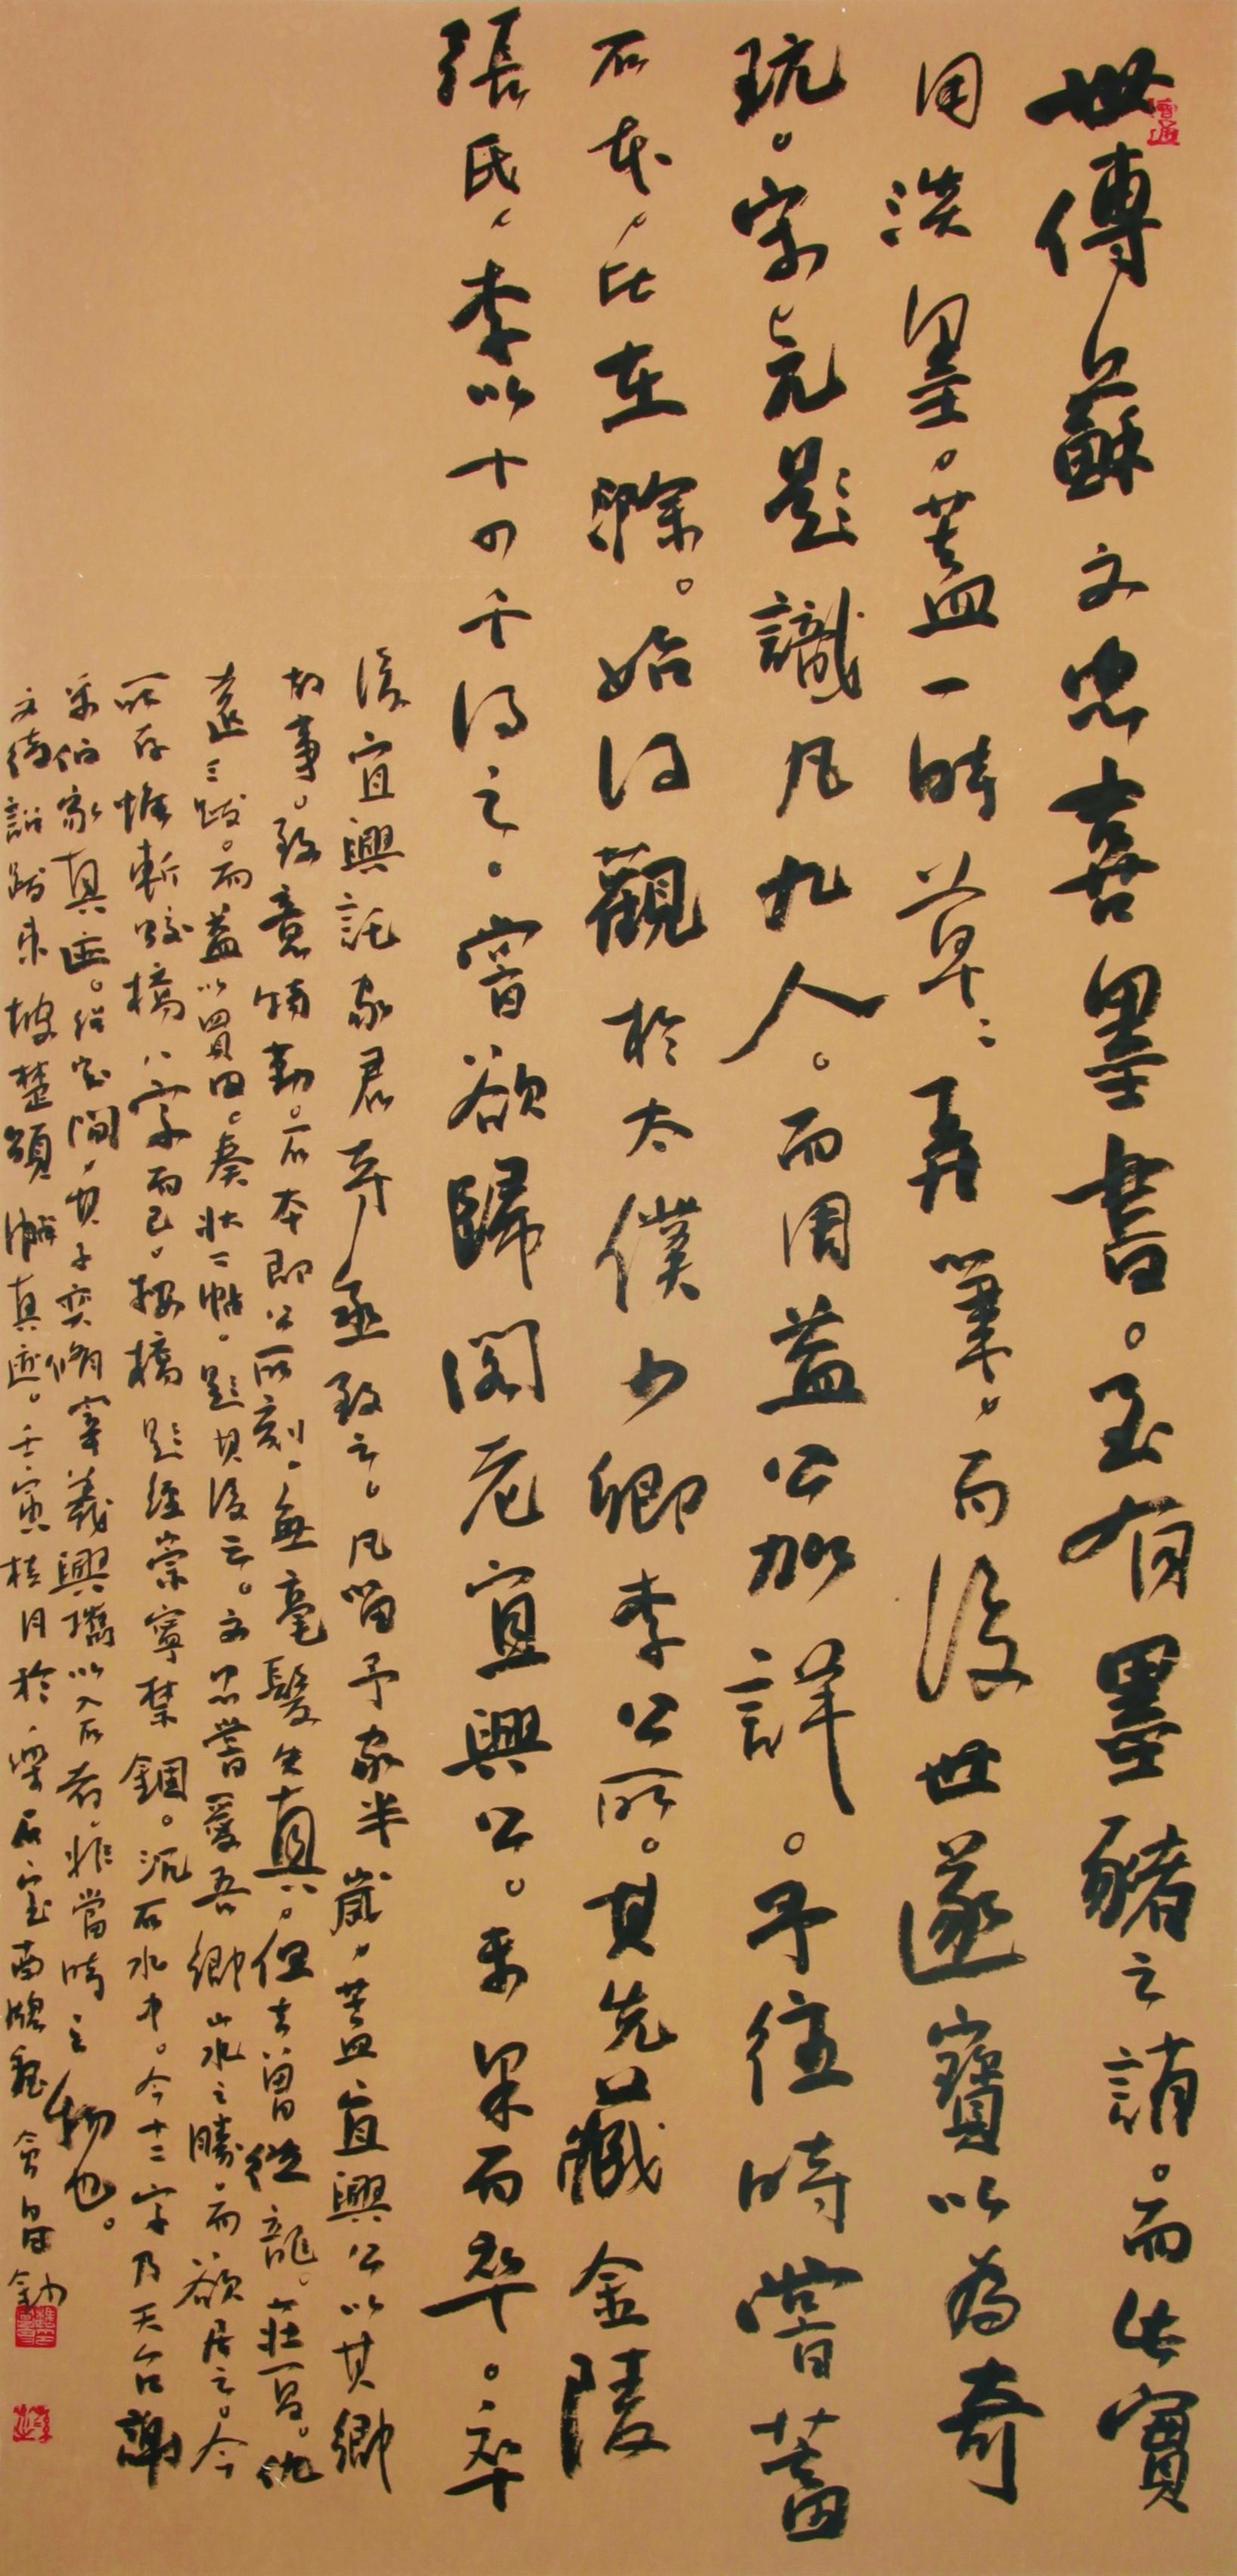 世傳蘇文忠喜墨書。至有墨豬之誚。而此實
用淡墨。蓋一時草草弄筆，而後世遂寶以為奇
玩。宋元題識凡九人。而周益公加詳。予往時嘗蓄
石本，比在滁。始得觀於太僕少卿李公所。其先藏金陵
張氏，李以十四千得之。嘗欲歸閣老宜興公。未果而卒。卒
後宜興託家君寺丞致之。凡留予家半歲，蓋宜興公以其鄉
故事。致意特勤。石本即公所刻，無毫髮失真。但去曾從龍。莊夏。仇
遠三跋。而益以買田。奏狀二帖。題其後云。文忠嘗愛吾鄉山水之勝。而欲居之。今
所存惟斬蛟橋八字而已。按橋題經崇寧禁錮。沉石水中。今十二字乃天台謝
采伯家真跡。紹定間，其子奕脩宰義興攜以入石者，非當時之物也。
文待詔跋東坡楚頌帖真跡。壬寅桂月於樂石室南牕